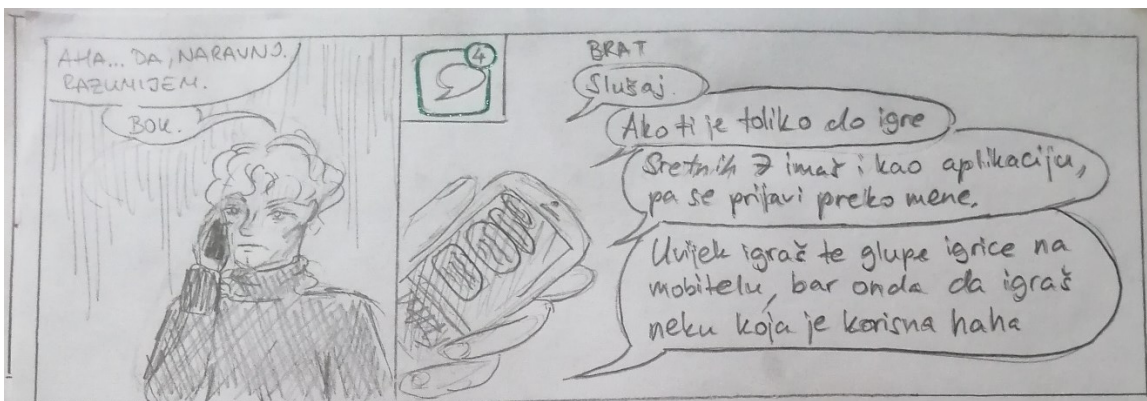 AHA... DA, NARAVNO.
RAZUMIJEM.
BOK.
4
BRAT
Slušaj.
Ako ti je toliko do igre
Sretnih 7 imaš i kao aplikaciju,
pa se prijavi preko mene.
Uvijek igraš te glupe igrice na
mobitelu, bar onda da igraš
neku koja je korisna haha